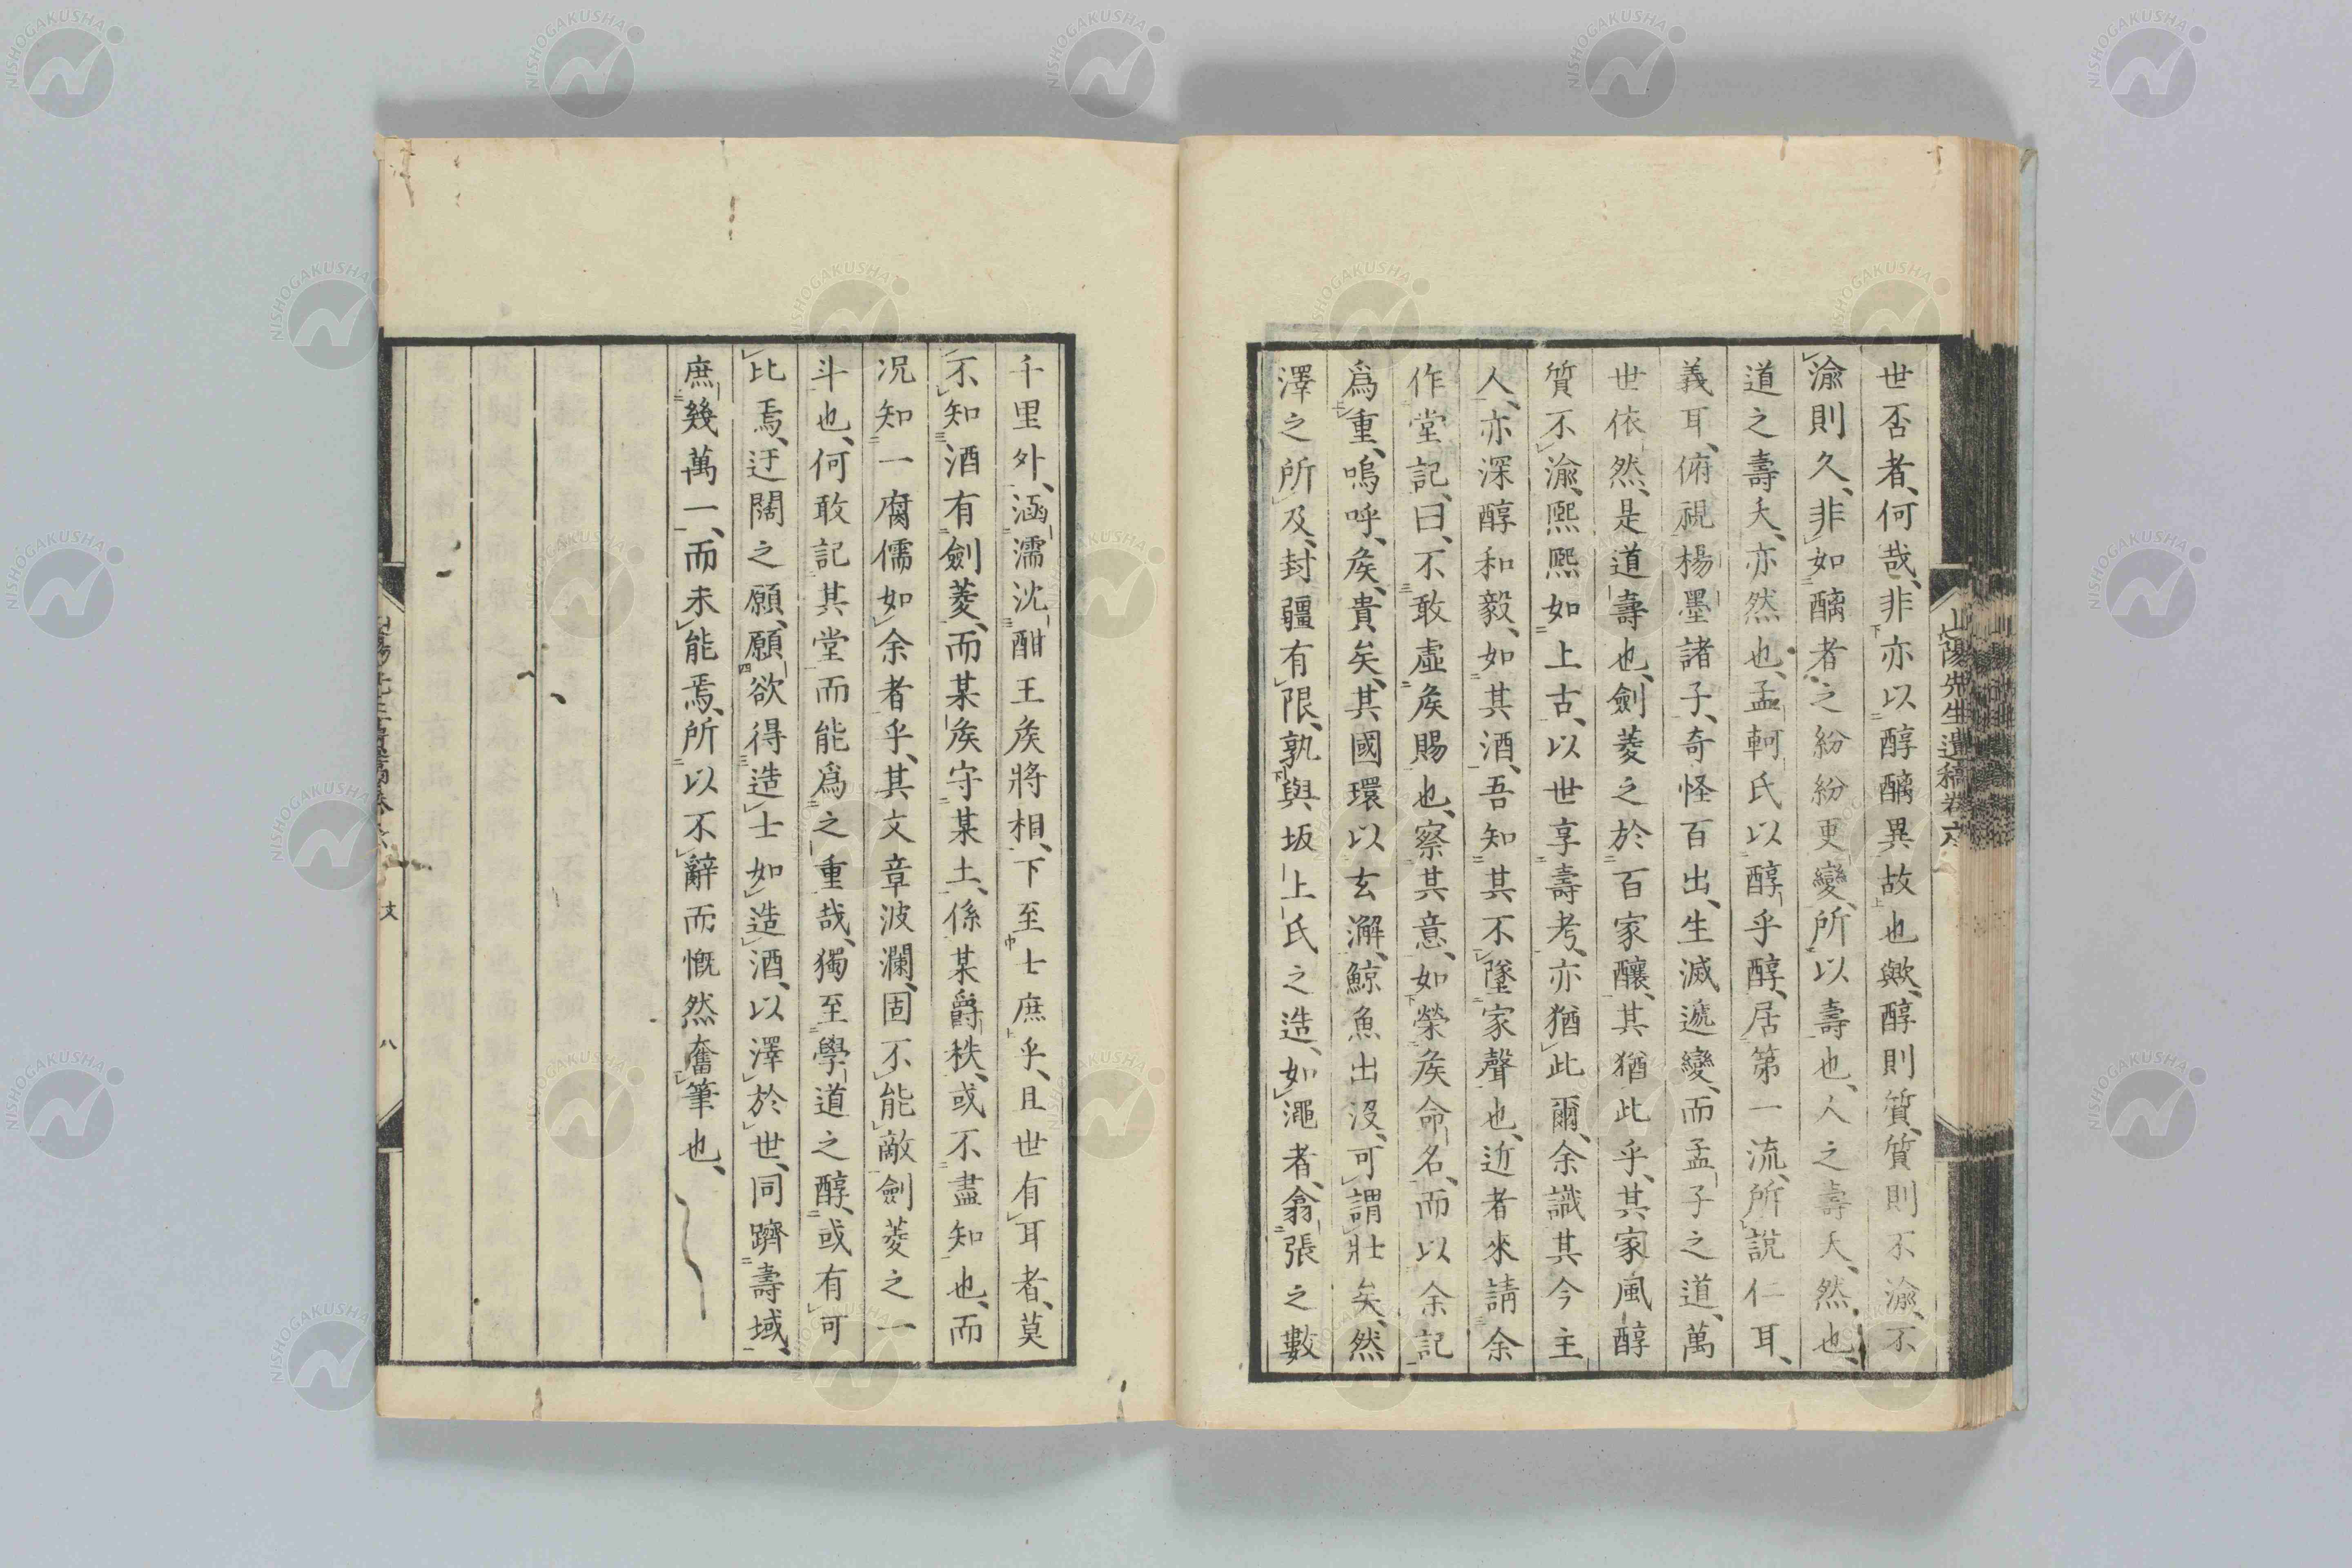 山陽先生遺稿卷六
世否者、何哉、非亦以醇醨異故也歟、醇則質、質則不渝、不
渝則久、非如醨者之紛紛更變、所以壽也、人之壽夭、然也、
道之壽夭、亦然也、孟軻氏以醇乎醇、居第一流、所說仁耳、
義耳、俯視楊墨諸子、奇怪百出、生滅遞變、而孟子之道、萬
世依然、是道壽也、劍菱之於百家釀、其猶此乎、其家風醇
質不渝、熙熙如上古、以世享壽考、亦猶此爾、余識其今主
人、亦深醇和毅、如其酒、吾知其不墜家聲也、近者來請余
作堂記、曰、不敢虛矦賜也、察其意、如榮矦命名、而以余記
爲重、嗚呼、矦貴矣、其國環以玄瀣、鯨魚出沒、可謂壯矣、然
澤之所及、封疆有限、孰與坂上氏之造、如澠者、翕張之數
千里外、涵濡沈酣王矦將相、下至士庶乎、且世有耳者、莫
不知酒有劍菱、而某矦守某土、係某爵秩、或不盡知也、而
况知一腐儒如余者乎、其文章波瀾、固不能敵劍菱之一
斗也、何敢記其堂而能爲之重哉、獨至學道之醇、或有可
比焉、迂闊之願、願欲得造士如造酒、以澤於世、同躋壽域、
庶幾萬一、而未能焉、所以不辭而慨然奮筆也、
八